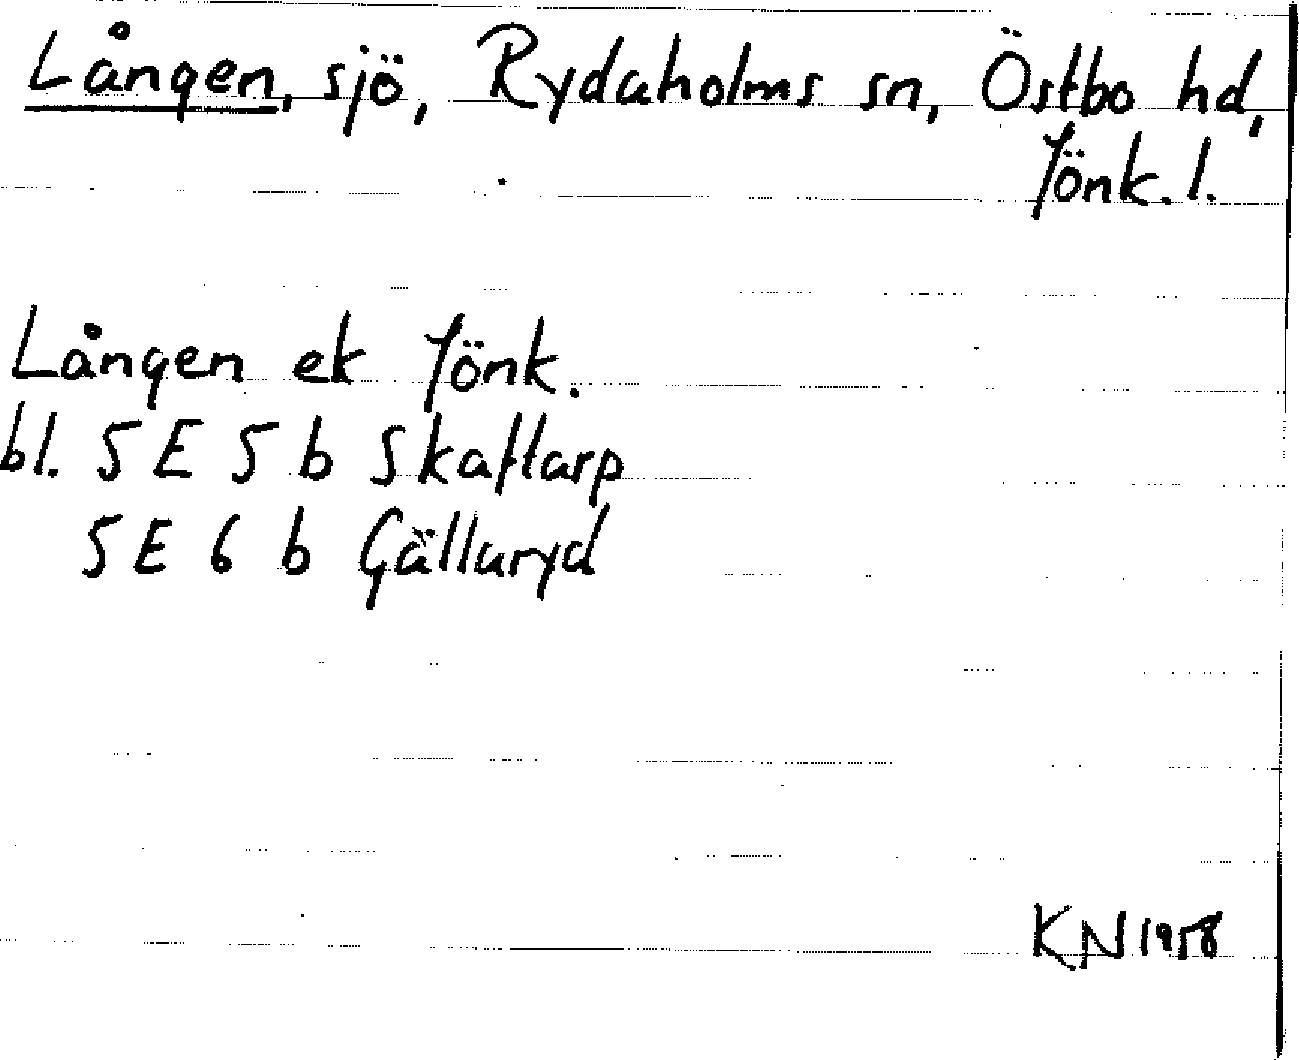 Lången, sjö, Rydaholms sn, Östbo hd,
Jönk. l.
Lången ek Jönk.
bl. 5 E 5 b Skaftarp
5 E 6 b Gällaryd
KN 1958